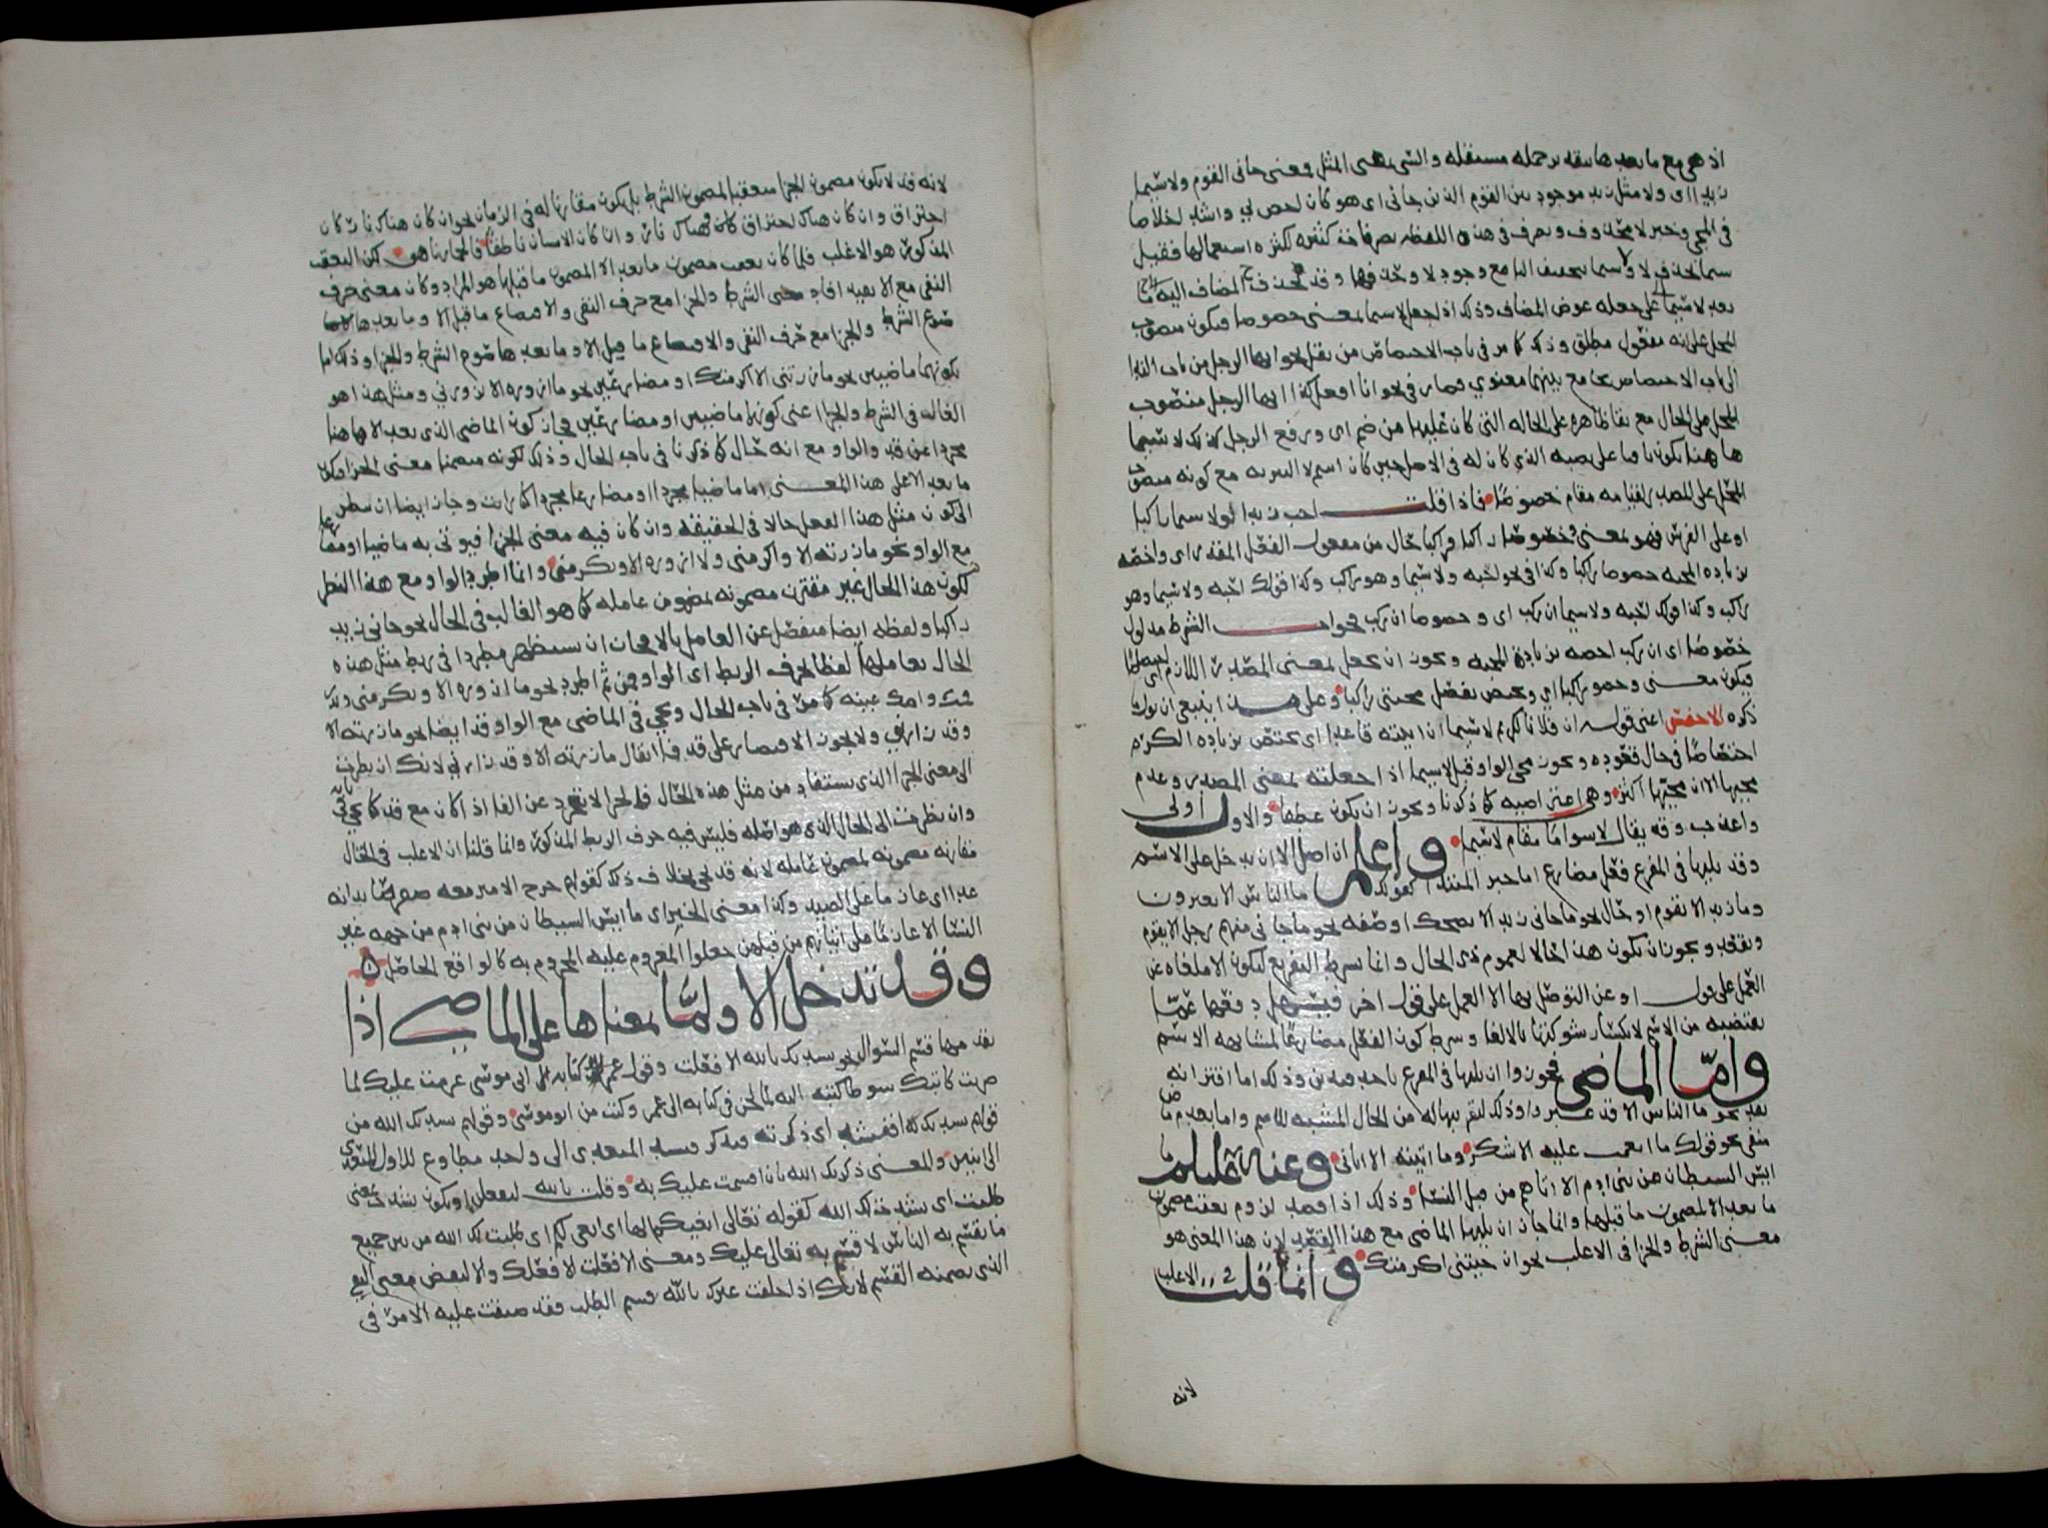 اذ هي مع ما بعدها بتقدير جملة مستقلة والسي بمعنى المثل فمعنى جاني القوم ولا سيما
زيد اي ولا مثل زيد موجود بين القوم الذين جاني اي هو كان اخص بي واشد اخلاصا
في المجي وخبر لا محذوف وتصرف في هذه اللفظة تصرفات كثيرة لكثرة استعمالها فقيل
سيما بحذف لا ولا سيما بتخفيف اليا مع وجود لا وحذفها وقد يحذف المضاف اليه ما
بعد لا سيما على جعله عوض المضاف وذلك اذ لجعل لا سيما بمعنى خصوصا فيكون منصوب
المحل على انه مفعول مطلق وذلك كما مر في باب الاختصاص من نقل نحو ايها الرجل من باب الندا
الى باب الاختصاص مع بينهما معنوي فصار في نحو انا افعل كذا ايها الرجل منصوب
المحل على الحال مع بقا ظاهره على الحالة التي كان عليها من ضم اي ورفع الرجل كذلك لا سيما
هاهنا يكون باقيا على نصبه الذي كان له في الاصل حين كان اسم لا التبرية مع كونه منصوب
المحل على المصدر لقيامه مقام خصوصا فاذا قلت احب زيدا ولا سيما راكبا
او على الفرس فهو بمعنى وخصوصا راكبا فراكبا حال من مفعول الفعل المقدر اي واخصه
بزيادة المحبة خصوصا راكبا وكذا في نحو احبه ولا سيما وهو راكب وكذا قولك احبه ولا سيما وهو
راكب وكذا قولك احبه ولا سيما ان ركب اي وخصوصا ان ركب فجواب الشرط مدلول
خصوصا اي ان ركب اخصه بزيادة المحبة ويجوز ان يجعل بمعنى المصدر اللازم اي اختصاصا
فيكون معنى وخصوصا راكبا اي ويختص بفضل محبتي راكبا وعلى هذا ينبغي ان يؤول ما
ذكره الاخفش اعني قوله ان فلانا كريم لا سيما ان اتيته قاعدا اي يختص بزيادة الكرم
اختصاصا في حال قعوده ويجوز مجي الواو قبل لا سيما اذا جعلته بمعنى المصدر وعدم
مجيها الا ان مجيها اكثر وهي اعتراضية كما ذكرنا ويجوز ان يكون عطفا والاول اولى
واعذب وقد يقال لا سواما مقام لا سيما واعلم ان اصل الا ان يدخل على الاسم
وقد يليها في المفرغ فعل مضارع اما خبر المبتدا كقولك ما الناس الا يعبرون
وما زيد الا يقوم او حال نحو ما جاني زيد الا يضحك او صفة نحو ما جا ني منهم رجل الا يقوم
ويقعد ويجوز ان يكون هذا حالا لعموم ذي الحال وانما شرط التفريغ ليكون الا ملغاة عن
العمل على قول او عن التوصل بها الا العمل على قول اخر فيسهل دفعها عما
يقتضيه من الاسم لانكسار شوكتها بالالغا وشرط كون الفعل مضارعا لمشابهة الاسم
واما الماضي فجوزوا ان يليها في المفرغ باحد قيدين وذلك اما اقترانه
بقد نحو ما الناس الا قد عبروا وذلك لتقريبها له من الحال المشبه للاسم واما بعدم ماض
منفي نحو قولك ما انعمت عليه الا شكر وما اتيته الا اتاني وعنه عليه السلام ما
ايس الشيطان من بني ادم الا اتاهم من قبل النسا وذلك اذا قصد لزوم تعقب مضمون
ما بعد الا لمضمون ما قبلها وانما جاز ان يليها الماضي مع هذا القصد لان هذا المعنى هو
معنى الشرط والجزا في الاغلب نحو ان جيتني اكرمتك وانما قلت في الاغلب
لانه
لانه قد لا يكون مضمون الجزا متعقبا لمضمون الشرط بل يكون مقارنا له في الزمان نحو ان كان هناك نار كان
احتراق وان كان هناك احتراق كان هناك نار وان كان الانسان ناطقا فالحمار ناهق لكن التعقب
المذكور هو الاغلب فلما كان تعقب مضمون ما بعد الا لمضمون ما قبلها هو المراد وكان معنى حرف
النفي مع الا يفيد افاد معنى الشرط والجزا مع حرف النفي والا مصاع ما قبل الا وما بعدها
الشرط والجزا مع حرف النفي والا مصاع ما قبل الا وما بعدها صوم الشرط والجزا وذلك اما
بكونهما ماضيين نحو ما زرتني الا اكرمتك او مضارعين نحو ما ازوره الا يزورني ومثل هذا هو
الغالب في الشرط والجزا اعني كونهما ماضيين او مضارعين فجاز كون الماضي الذي بعد الا هاهنا
مجردا عن قد والواو مع انه حال كما ذكرنا في باب الحال وذلك لكونه متضمنا معنى الجزا وكون
ما بعد الا على هذا المعنى اما ماضيا مجردا او مضارعا مجردا كما رايت وجاز ايضا ان ينظر
الى كون مثل هذا الفعل حالا في الحقيقة وان كان فيه معنى الجزا فيوتى به ماضيا او مضارعا
مع الواو نحو ما زرته الا واكرمني ولا ازوره الا ويكرمني وانما اطرد الواو مع هذا النظر
لكون هذا الحال غير مقترن مضمونه بمضمون عامله كما هو الغالب في الحال نحو جاني زيد
راكبا ولفظه ايضا منفصل عن العامل بالا فجاز ان يستظهر مطردا في ربط مثل هذه
الحال بعاملها لفظا بحرف الربط اي الواو فمن ثم اطرد نحو ما ازوره الا ويكرمني وقل
قمت واصك عينه كما مر في باب الحال ويجي في الماضي مع الواو قد ايضا نحو ما زرته الا
وقد زارني ولا يجوز الاقتصار على قد فلا يقال ما زرته الا وقد زارني لانك ان نظرت
الى معنى الجزا الذي يستفاد من مثل هذه الحال فالجزا لا يتجرد عن الفا اذا كان مع قد كما يجي في بابه
وان نظرت الى الحال الذي هو اصله فليس فيه حرف الربط المذكور وانما قلنا ان الاغلب في الحال
مقارنة مضمونه لمضمون عامله لانه قد يجي بخلاف ذلك كقولهم خرج الامير معه صقر صائدا به
غدا اي عازما على الصيد وكذا معنى الخبر اي ما ايس الشيطان من بني ادم من جهة غير
النسا الا عازما على اتيانهم من قبلهن جعلوا المعزوم عليه المجزوم به كالواقع الحاصل
وقد تدخل الا ولما بمعناها على الماضي اذا
تقدمها قسم السوال نحو نشدتك بالله الا فعلت وقول عمر في كتابه الى ابي موسى عزمت عليك لما
ضربت كاتبك سوطا كتبه اليه لما لحن في كتابه الى عمر وكتب من ابو موسى وقولهم نشدتك الله من
قولهم نشدتك كذا فنشده اي ذكرته فتذكر ونشد المتعدي الى واحد مطاوع للاول المتعدي
الى اثنين والمعنى ذكرتك الله بان اقسمت عليك به وقلت بالله لتفعلن او يكون نشدت بمعنى
طلبت اي نشدت لك الله كقوله تعالى ابغيكم الها اي ابغي لكم اي طلبت لك الله من بين جميع
ما يقسم به الناس لا قسم به تعالى عليك ومعنى الا فعلت الا فعلك والا لنقض معنى النفي
الذي تضمنه القسم لانك اذا حلفت غيرك بالله قسم الطلب فقد ضيقت عليه الامر في